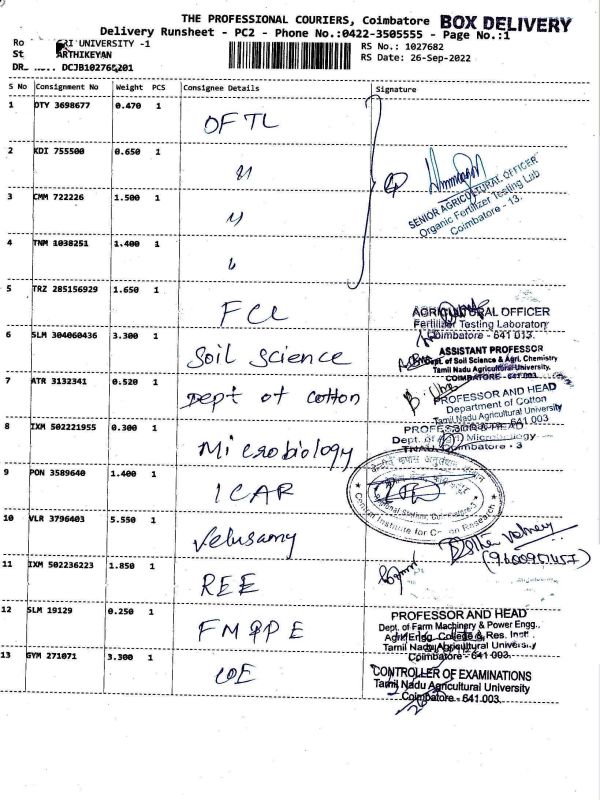 THE PROFESSIONAL COURIERS, Coimbatore BOX DELIVERY
Delivery Runsheet - PC2 - Phone No.:0422-3505555 - Page No.:1
Ro GRI UNIVERSITY -1 RS No.: 1027682
St ARTHIKEYAN RS Date: 26-Sep-2022
DR
S No Consignment No Weight PCS Consignee Details Signature
1 DTY 3698677 0.470 1 OFTL
2 KDI 755500 0.650 1 "
3 CMM 722226 1.500 1 "
4 TNM 1038251 1.400 1 "
SENIOR AGRICULTURAL OFFICER
Organic Fertilizer Testing Lab
Coimbatore - 13.
5 TRZ 285156929 1.650 1 FCL
AGRICULTURAL OFFICER
Fertilizer Testing Laboratory
Coimbatore - 641 013.
6 SLM 304060436 3.300 1 Soil Science
ASSISTANT PROFESSOR
Dept. of Soil Science & Agri. Chemistry
Tamil Nadu Agricultural University,
COIMBATORE - 641 003.
7 ATR 3132341 0.520 1 Dept of cotton
PROFESSOR AND HEAD
Department of Cotton
Tamil Nadu Agricultural University
641 003
8 IXM 502221955 0.300 1 Microbiology
PROFESSOR & HEAD
Dept. of Agri Microbiology
TNAU, Coimbatore - 3
9 PON 3589640 1.400 1 ICAR
Central Institute for Cotton Research
10 VLR 3796403 5.550 1 Velusamy
11 IXM 502236223 1.850 1 REE
12 SLM 19129 0.250 1 FMPPE
PROFESSOR AND HEAD
Dept. of Farm Machinery & Power Engg.,
Agrl Engg. College & Res. Inst.,
Tamil Nadu Agricultural University
Coimbatore - 641 003.
13 GYM 271071 3.300 1 COE
CONTROLLER OF EXAMINATIONS
Tamil Nadu Agricultural University
Coimbatore - 641 003